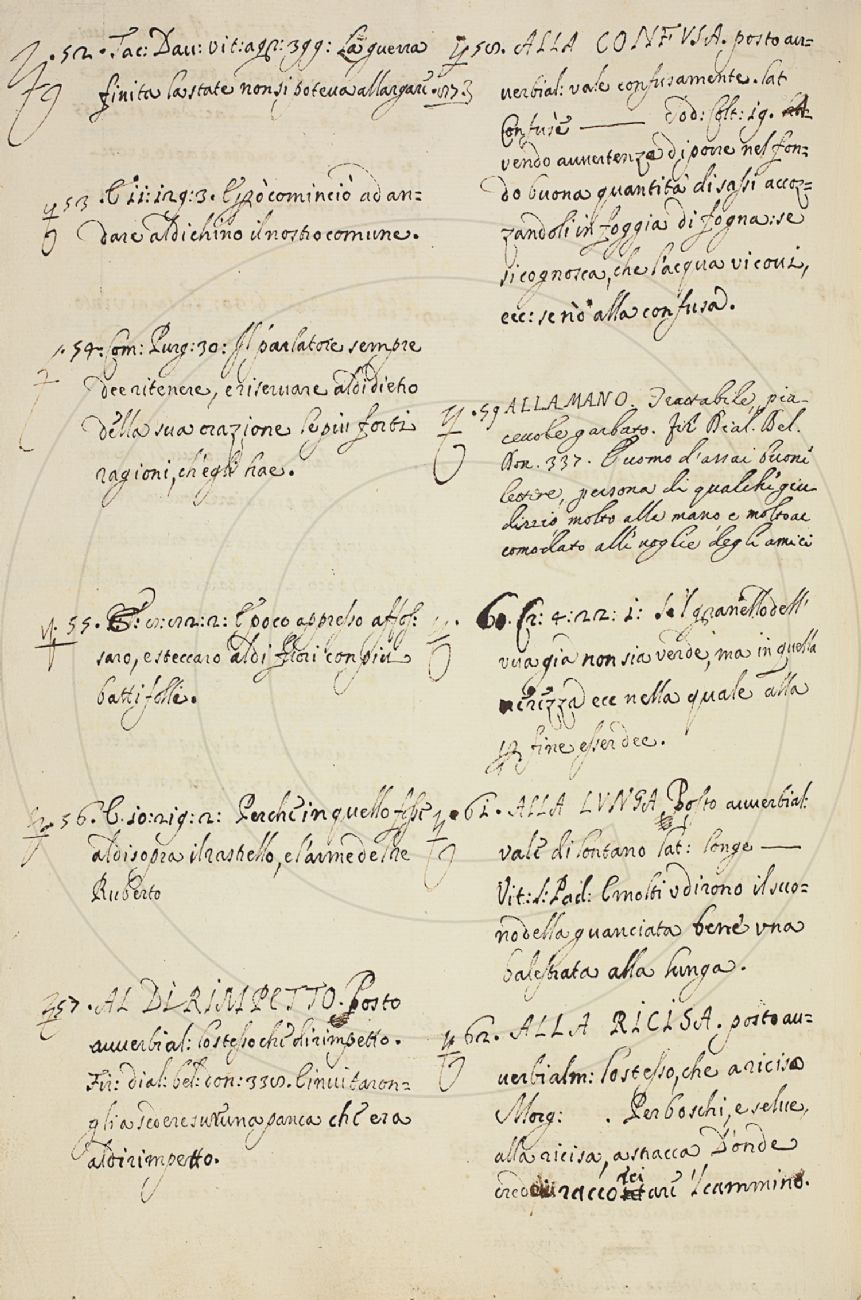 52. Tac: Dav: vit: agr: 399: La guerra
finita la state non si poteva allargare.
53. C. 11: 129: 3. E però cominciò ad an=
dare al dichino il nostro comune.
54. Com: Purg: 30: Il parlatore sempre
dee ritenere, e riservare al di dietro
della sua orazione le più forti
ragioni, ch'egli hae.
55. E poco appresso affos:
saro, e steccaro al di fuori con più
battifolli.
56. C. 10: 219: 2: Perche in quello fosse
al di sopra il rastello, e l'arme del Re
Ruberto
57. AL DIRIMPETTO. Posto
avverbial: lo stesso che dirimpetto.
Fir: dial: bel: don: E invitaron=
gli a sedere sur una panca che era
al dirimpetto.
58. ALLA CONFVSA. posto av=
verbial: vale confusamente. lat
Confuse —— Sod: Colt: 19. A=
vendo avvertenza di porre nel fon=
do buona quantità di sassi accoz=
zandoli in foggia di fogna: se
si cognosca, che l'acqua vi covi,
ecc: se nò alla confusa.
59 ALLA MANO. Trattabile, pia
cevole garbato. fir Dial. Bel.
Don. 337. E uomo d'assai buone
lettere, persona di qualche giu
dizio molto alla mano e molto ac
comodato alle voglie degli amici
60. Cr: 4: 22: 1: Se 'l granello dell'
uva già non sia verde, ma in quella
nerezza ecc nella quale alla
fine esser dee.
61. ALLA LVNGA, Posto avverbial:
vale di lontano lat: longe ——
Vit: S: Pad: E molti udirono il suo=
no della guanciata bene una
balestrata alla lunga.
62. ALLA RICISA. posto av=
verbialm: lo stesso, che a ricisa
Morg: . Per boschi, e selve,
alla ricisa, a stracca D'onde
credo di raccortare 'l cammino.